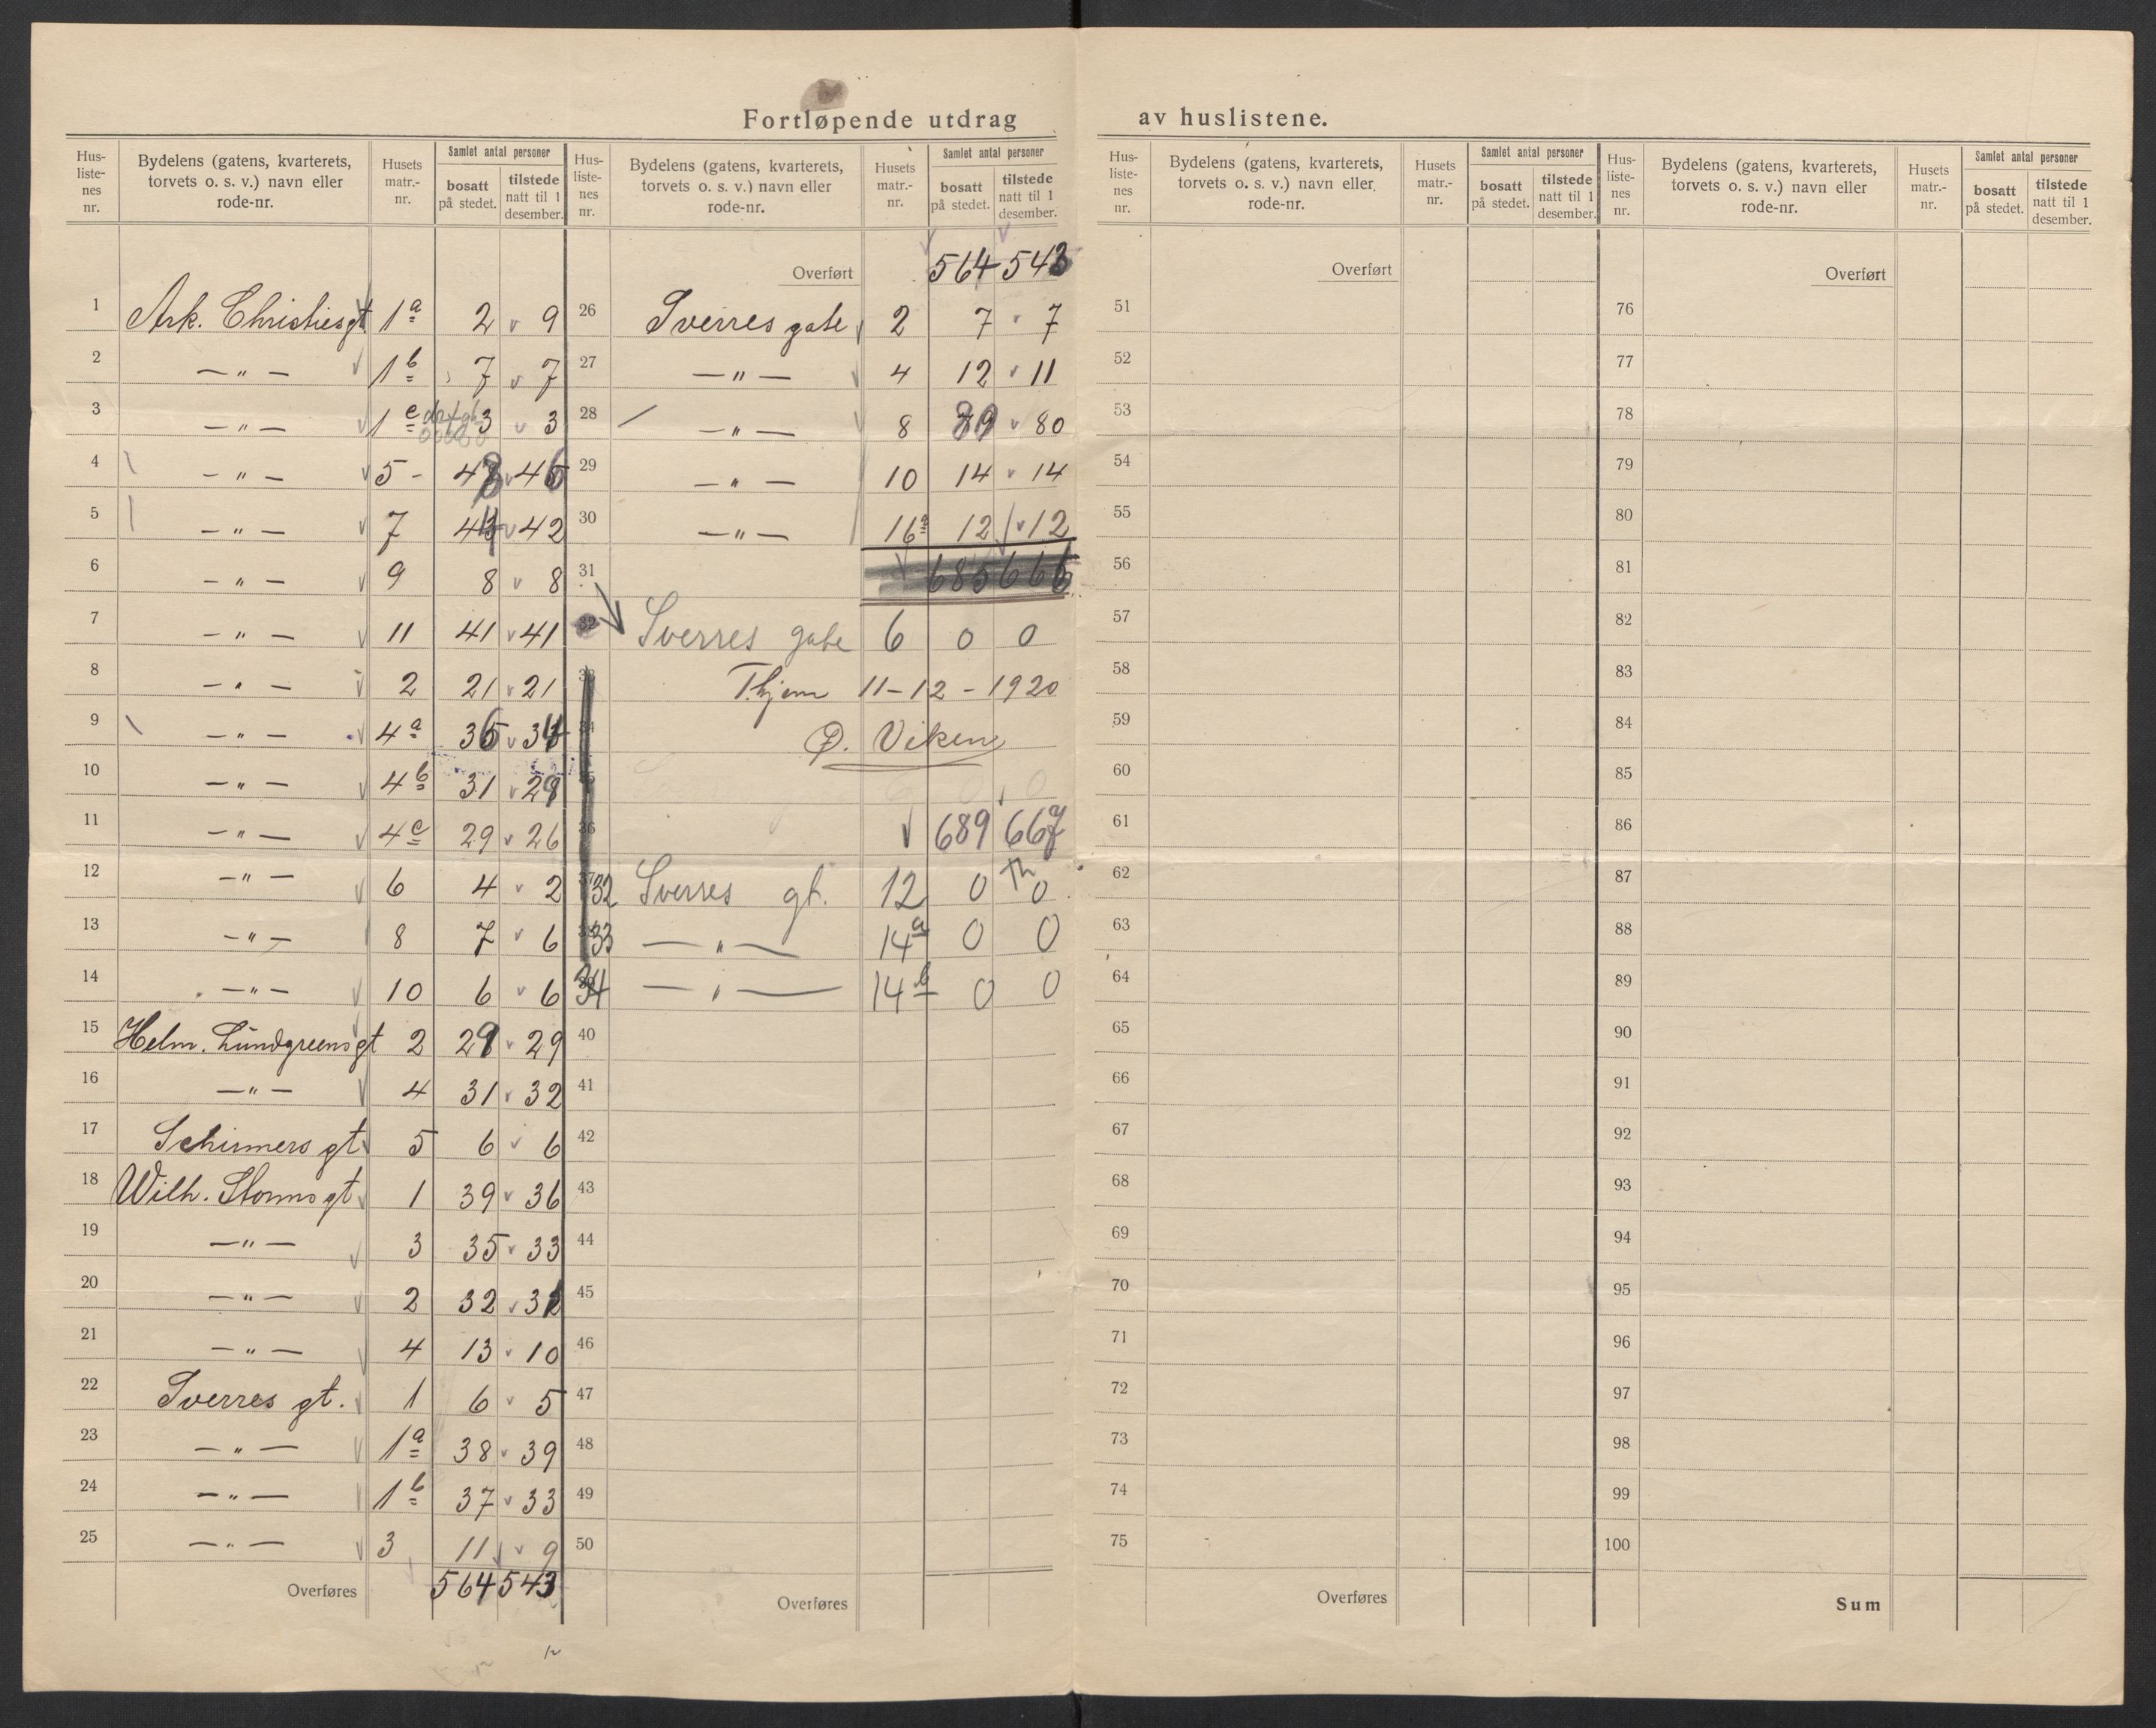 Fortløpende utdrag av huslistene.
Hus-liste-nes nr. Bydelens (gatens, kvarterets, torvets o. s. v.) navn eller rode-nr. Husets matr.-nr. Samlet antal personer bosatt på stedet. tilstede natt til 1 desember.
1 Ark. Christies gt. 1a 2 9
2 — " — 1b 7 7
3 — " — 1c 3 3
4 — " — 5 48 46
5 — " — 7 44 42
6 — " — 9 8 8
7 — " — 11 41 41
8 — " — 2 21 21
9 — " — 4a 36 34
10 — " — 4b 31 28
11 — " — 4c 29 26
12 — " — 6 4 2
13 — " — 8 7 6
14 — " — 10 6 6
15 Helm. Lundgreens gt 2 29 29
16 — " — 4 31 32
17 Schirmers gt 5 6 6
18 Wilh. Storms gt 1 39 36
19 — " — 3 35 33
20 — " — 2 32 31
21 — " — 4 13 10
22 Sverres gt. 1 6 5
23 — " — 1a 38 39
24 — " — 1b 37 33
25 — " — 3 11 9
Overføres 564 543
Hus-liste-nes nr. Bydelens (gatens, kvarterets, torvets o. s. v.) navn eller rode-nr. Husets matr.-nr. Samlet antal personer bosatt på stedet. tilstede natt til 1 desember.
Overført 564 543
26 Sverres gate 2 7 7
27 — " — 4 12 11
28 — " — 8 80
29 — " — 10 14 14
30 — " — 16a 12 12
31 685 666
Sverres gate 6 0 0
Thjem 11-12-1920
Ø. Viken
689 667
32 Sverres gt. 12 0 0
33 — " — 14a 0 0
34 — " — 14b 0 0
40
41
42
43
44
45
46
47
48
49
50
Overføres
Hus-liste-nes nr. Bydelens (gatens, kvarterets, torvets o. s. v.) navn eller rode-nr. Husets matr.-nr. Samlet antal personer bosatt på stedet. tilstede natt til 1 desember.
Overført
51
52
53
54
55
56
57
58
59
60
61
62
63
64
65
66
67
68
69
70
71
72
73
74
75
Overføres
Hus-liste-nes nr. Bydelens (gatens, kvarterets, torvets o. s. v.) navn eller rode-nr. Husets matr.-nr. Samlet antal personer bosatt på stedet. tilstede natt til 1 desember.
Overført
76
77
78
79
80
81
82
83
84
85
86
87
88
89
90
91
92
93
94
95
96
97
98
99
100
Sum